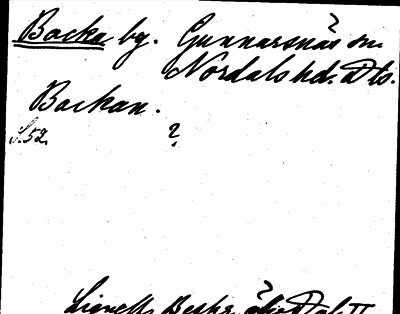 Backa by. Gunnarsnäs sn.
Nordals hd. Dls.
Backan.
S. 52. ?
Lignell, Beskr. öfver Dal II